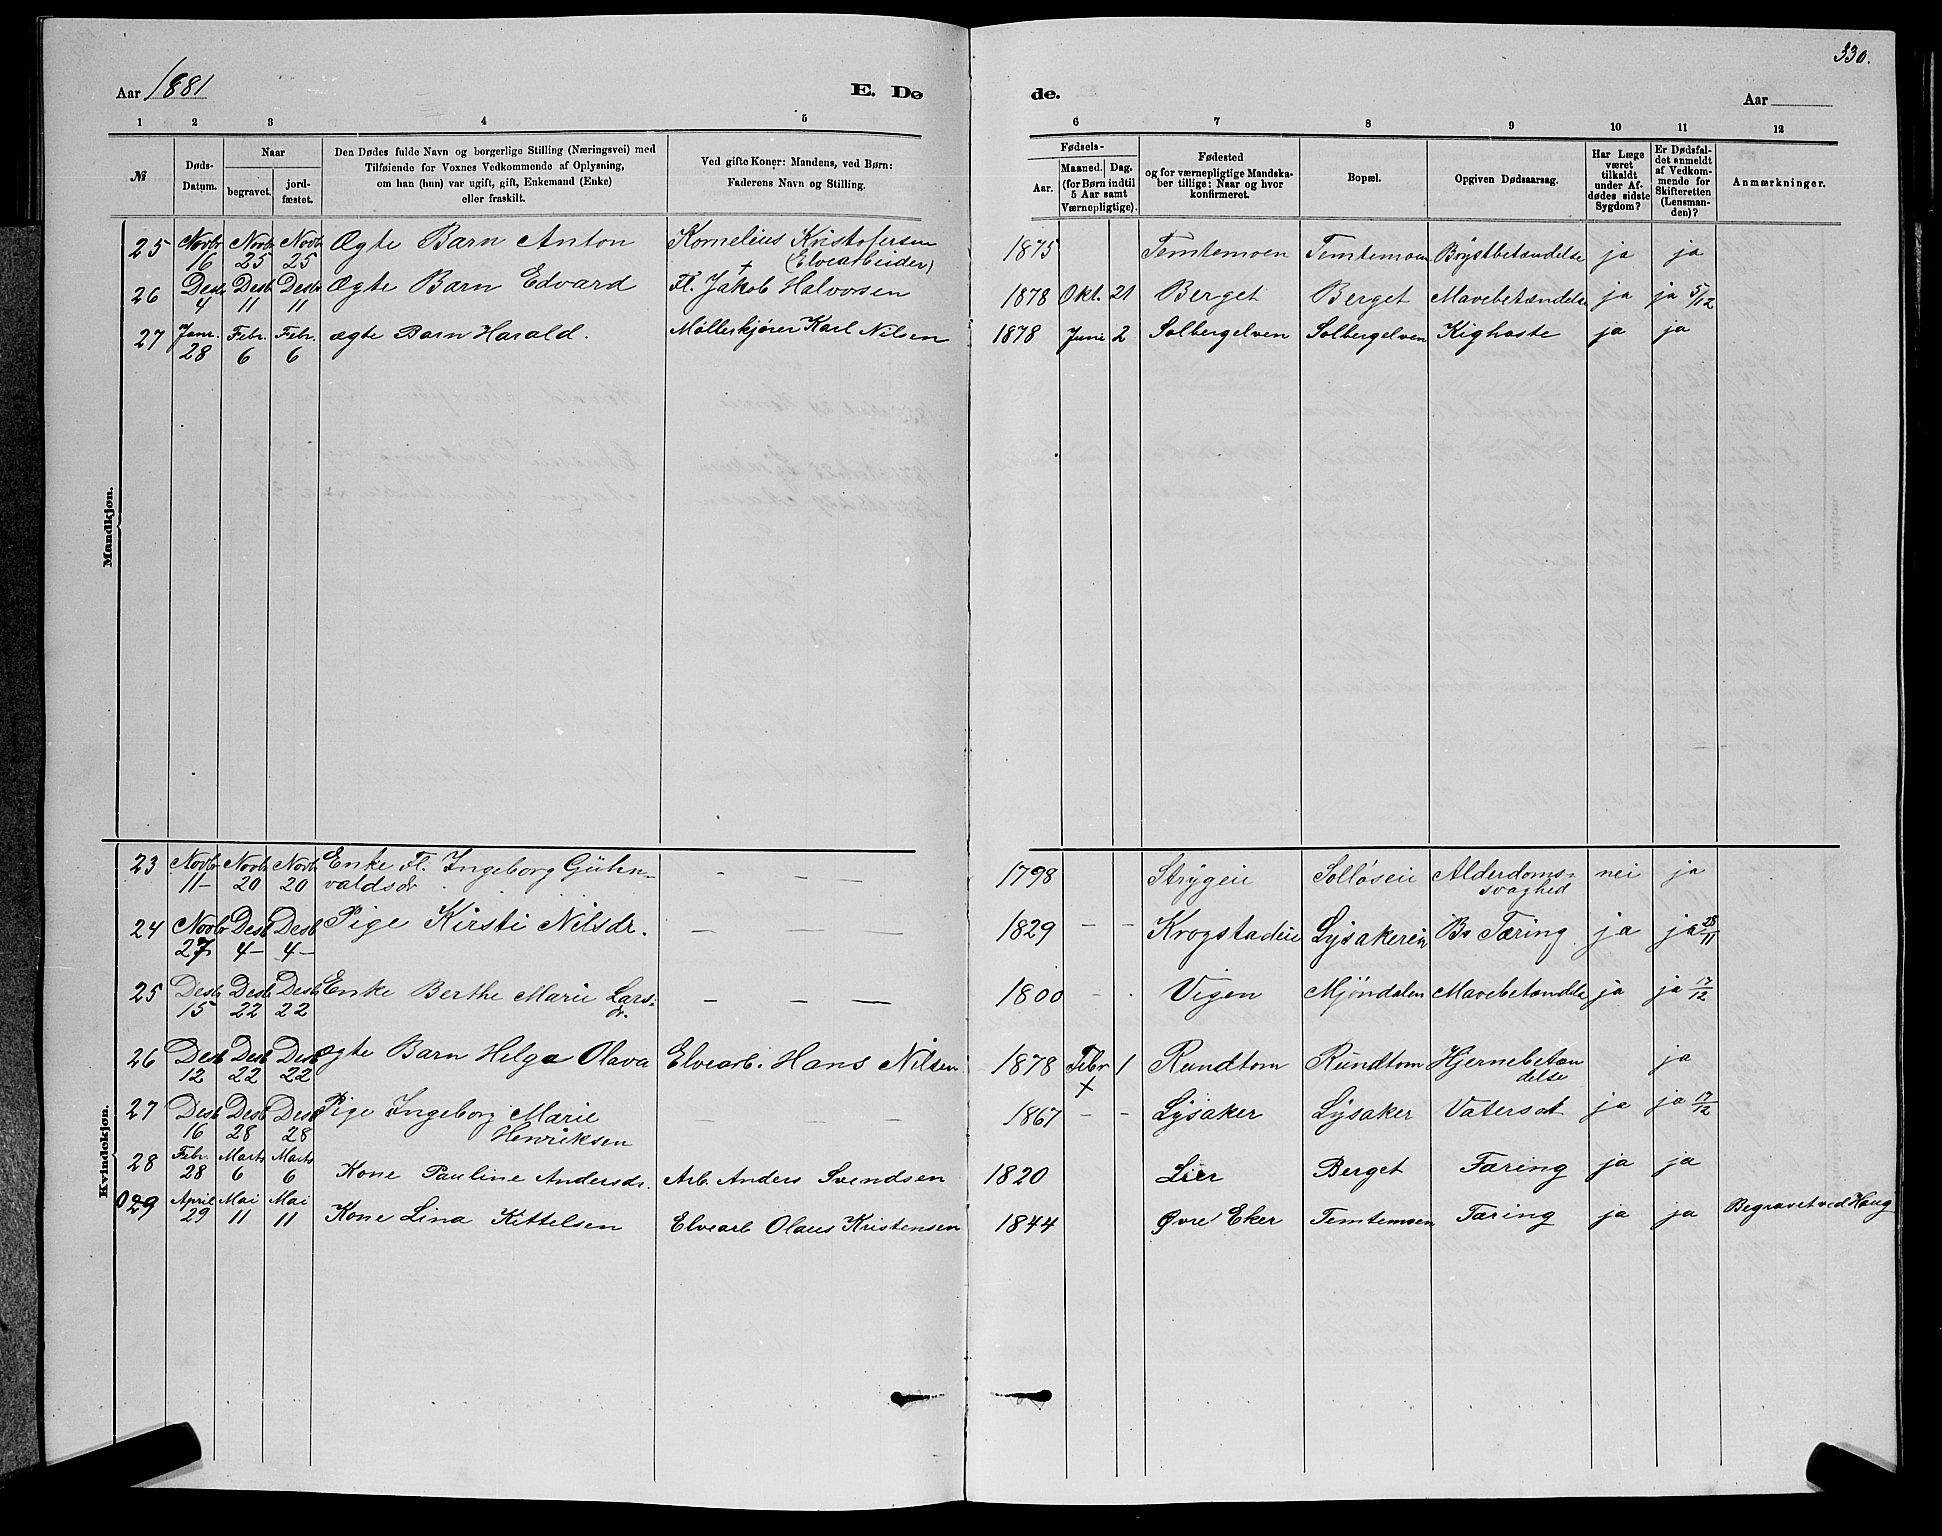 330.
Aar 1881
E. Dø
de.
Aar
1 2 3 4 5 6 7 8 9 10 11 12
№
Døds-
Datum.
Naar
begravet.
jord-
fæstet.
Den Dødes fulde Navn og borgerlige Stilling (Næringsvei) med
Tilføiende for Voxnes Vedkommende af Oplysning,
om han (hun) var ugift, gift, Enkemand (Enke)
eller fraskilt.
Ved gifte Koner: Mandens, ved Børn:
Faderens Navn og Stilling.
Fødsels-
Aar.
Maaned. Dag.
(for Børn indtil
5 Aar samt
Værnepligtige).
Fødested
og for værnepligtige Mandska-
ber tillige: Naar og hvor
konfirmeret.
Bopæl.
Opgiven Dødsaarsag.
Har Læge
været
tilkaldt
under Af-
dødes sidste
Sygdom?
Er Dødsfal-
det anmeldt
af Vedkom-
mende for
Skifteretten
(Lensman-
den)?
Anmærkninger.
Mandkjøn.
25 Novbr 16 Novbr 25 Novbr 25 Ægte Barn Anton Kornelius Kristofersen (Elvearbeider) 1875 Temtemoen Temtemoen Brystbetændelse ja ja
26 Desbr 4 Desbr 11 Desbr 11 Ægte Barn Edvard Fl. Jakob Halvorsen 1878 Okt. 21 Berget Berget Mavebetændelse ja ja 5/12
27 Janr. 28 Febr. 6 Febr. 6 ægte Barn Harald. Møllerkjører Karl Nilsen 1878 Juni 2 Solbergelven Solbergelven Kighoste ja ja
Kvindekjøn.
23 Novbr 11 Novbr 20 Novbr 20 Enke Fl. Ingeborg Guhn-
valdsdr - - - 1798 Strygeie Solløseie Alderdoms-
svaghed nei ja
24 Novbr 27 Desb 4 Desb 4 Pige Kirsti Nilsdr. - - - 1829 - - Krogstadeie Lysakereie Br Tæring ja ja 28/11
25 Desbr 15 Desb 22 Desb 22 Enke Berthe Marie Lars-
dr. - - - 1800 - - Vigen Mjøndalen Mavebetændelse ja ja 17/12
26 Desb 12 Desb 22 Desb 22 ægte Barn Helga Olava Elvearb. Hans Nilsen 1878 Febr 1 Rundtom Rundtom Hjernebetæn
delse ja
27 Desb 16 Desb 28 Desb 28 Pige Ingeborg Marie
Henriksen - - - 1867 - - Lysaker Lysaker Vatersot ja ja 17/12
28 Febr. 28 Marts 6 Marts 6 Kone Pauline Andersdr. Arb. Anders Svendsen 1820 Lier Berget Tæring ja ja
29 April 29 Mai 11 Mai 11 Kone Lina Kittelsen Elvearb Olaus Kristensen 1844 Øvre Eker Temtemoen Tæring ja ja Begravet ved Haug